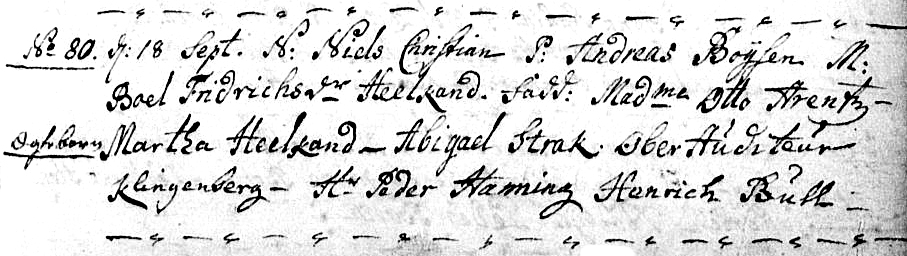 No 80. d: 18 Sept. N: Niels Christian P: Andreas Boÿsen M:
Boel Fridrichsdr Heelkand. Fadd: Madme Otto Arentz –
Martha Heelkand – Abigael Strak. Ober Auditeur
Klingenberg – Hr Peder Hanning Henrich Bull –